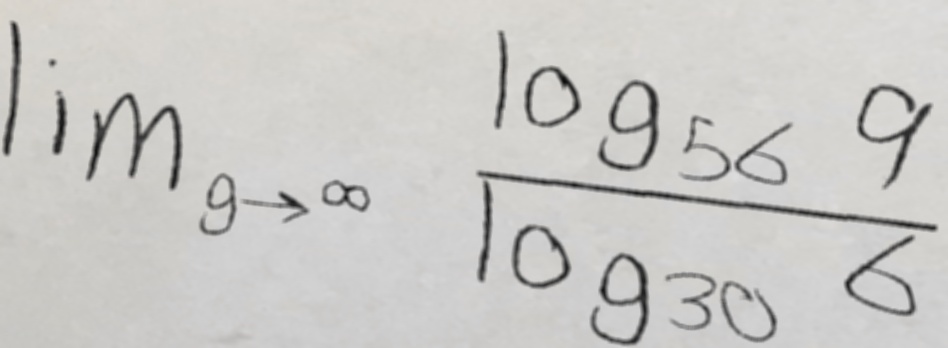 lim_{g→∞} \frac{log_{56} 9}{log_{30} 6}